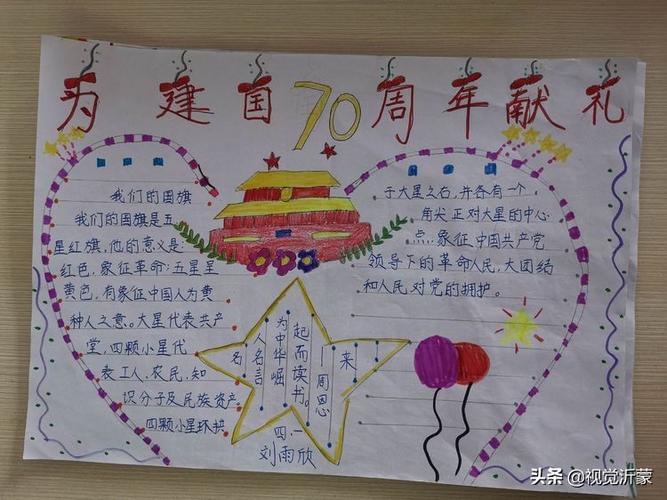 为建国70周年献礼
我们的国旗
我们的国旗是五
星红旗，他的意义是:
红色，象征革命；五星呈
黄色，有象征中国人为黄
种人之意。大星代表共产
党，四颗小星代
表工人、农民、知
识分子及民族资产
四颗小星环拱
于大星之右，并各有一个
角尖正对大星的中心
点，象征中国共产党
领导下的革命人民，大团结
和人民对党的拥护。
名
人名言
为中华崛
起而读书。
——周恩
来
四.一
刘雨欣
头条 @视觉沂蒙